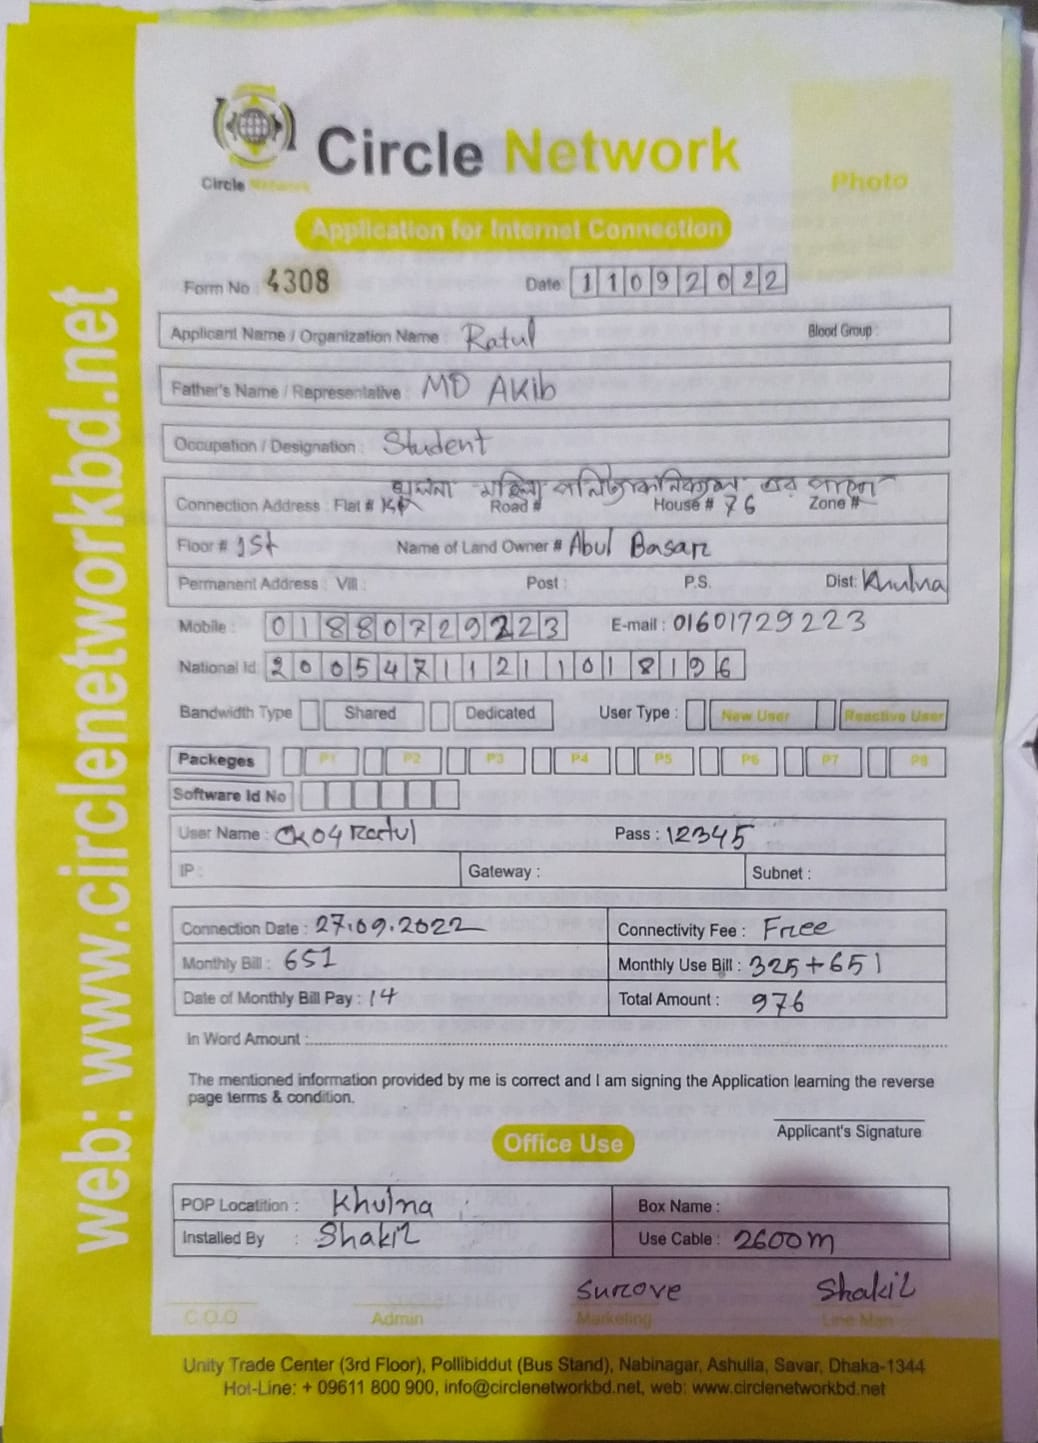 Circle Network
Circle Network
Photo
Application for Internet Connection
Form No : 4308 Date: 11092022
Applicant Name / Organization Name : Ratul Blood Group :
Father's Name / Representative : MD AKib
Occupation / Designation : Student
খুলনা মহিলা পলিটেকনিক্যাল এর পাশে
Connection Address : Flat # Road # House # 76 Zone #
Floor # 1st Name of Land Owner # Abul Basar
Permanent Address : Vill : Post : P.S. Dist: Khulna
Mobile : 01880729223 E-mail : 01601729223
National Id: 20054711211018196
Bandwidth Type Shared Dedicated User Type : New User Reactive User
Packeges P1 P2 P3 P4 P5 P6 P7 P8
Software Id No
User Name : CK04Ratul Pass : 12345
IP : Gateway : Subnet :
Connection Date : 27.09.2022 Connectivity Fee : Free
Monthly Bill : 651 Monthly Use Bill : 325+651
Date of Monthly Bill Pay : 14 Total Amount : 976
In Word Amount :
The mentioned information provided by me is correct and I am signing the Application learning the reverse
page terms & condition.
Applicant's Signature
Office Use
POP Locatition : Khulna Box Name :
Installed By : Shakil Use Cable : 2600m
Surove Shakil
C.O.O Admin Marketing Line Man
Unity Trade Center (3rd Floor), Pollibiddut (Bus Stand), Nabinagar, Ashulia, Savar, Dhaka-1344
Hot-Line: + 09611 800 900, info@circlenetworkbd.net, web: www.circlenetworkbd.net
web: www.circlenetworkbd.net